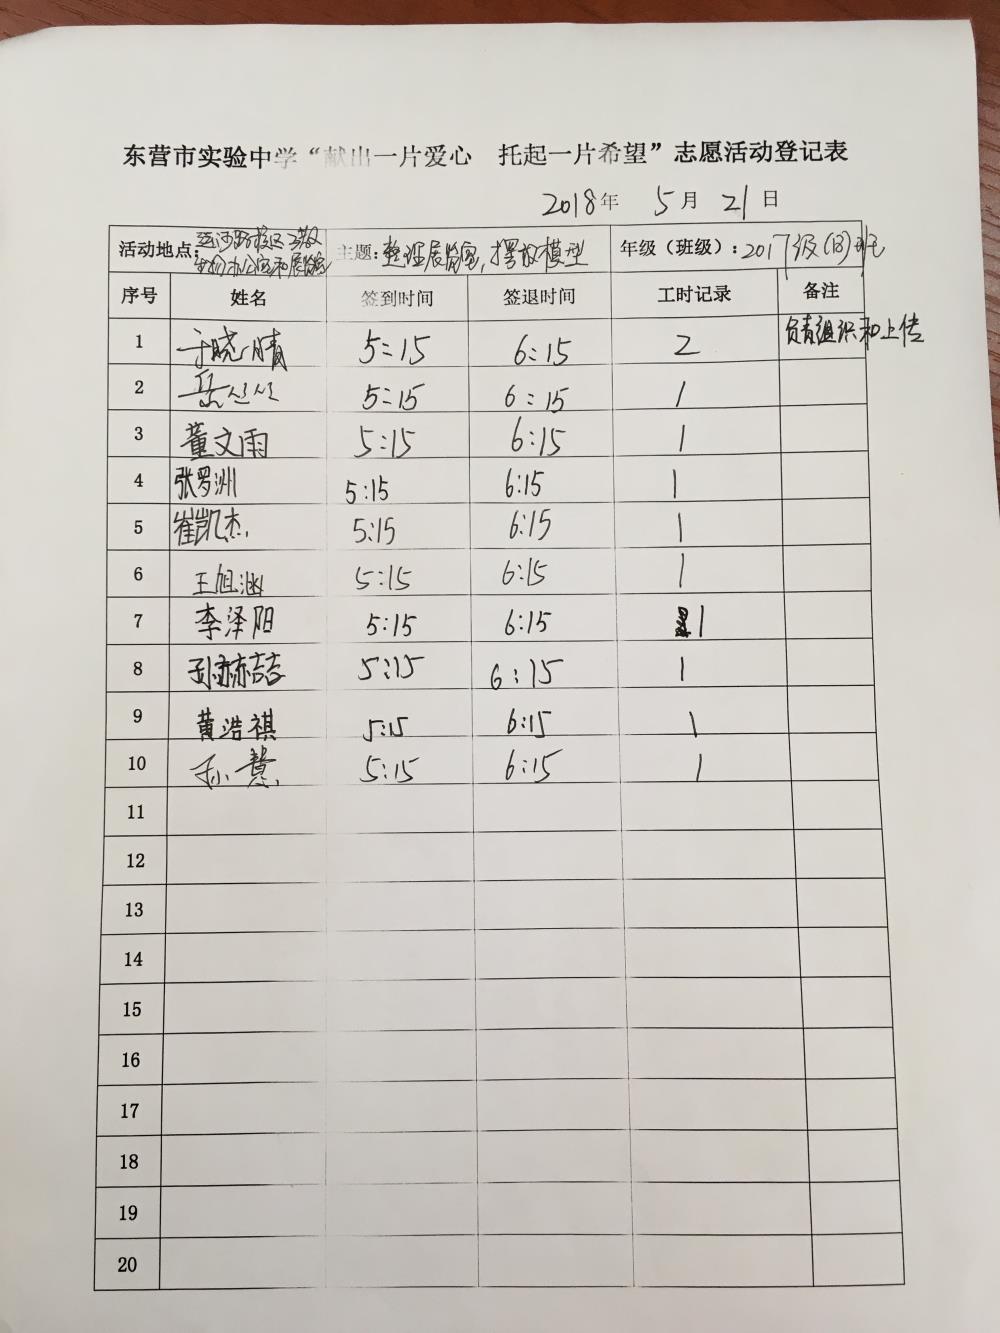 东营市实验中学“献出一片爱心 托起一片希望”志愿活动登记表
2018年 5月 21日
活动地点: 运河路校区 主题: 整理展览室,摆放模型 年级(班级): 2017级(13)班
生物办公室和展览室
序号 姓名 签到时间 签退时间 工时记录 备注
1 于晓晴 5:15 6:15 2 负责组织和上传
2 岳丝丝 5:15 6:15 1
3 董文雨 5:15 6:15 1
4 张罗洲 5:15 6:15 1
5 崔凯杰 5:15 6:15 1
6 王旭涵 5:15 6:15 1
7 李泽阳 5:15 6:15 1
8 孙赫喆 5:15 6:15 1
9 黄浩祺 5:15 6:15 1
10 孙慧 5:15 6:15 1
11
12
13
14
15
16
17
18
19
20